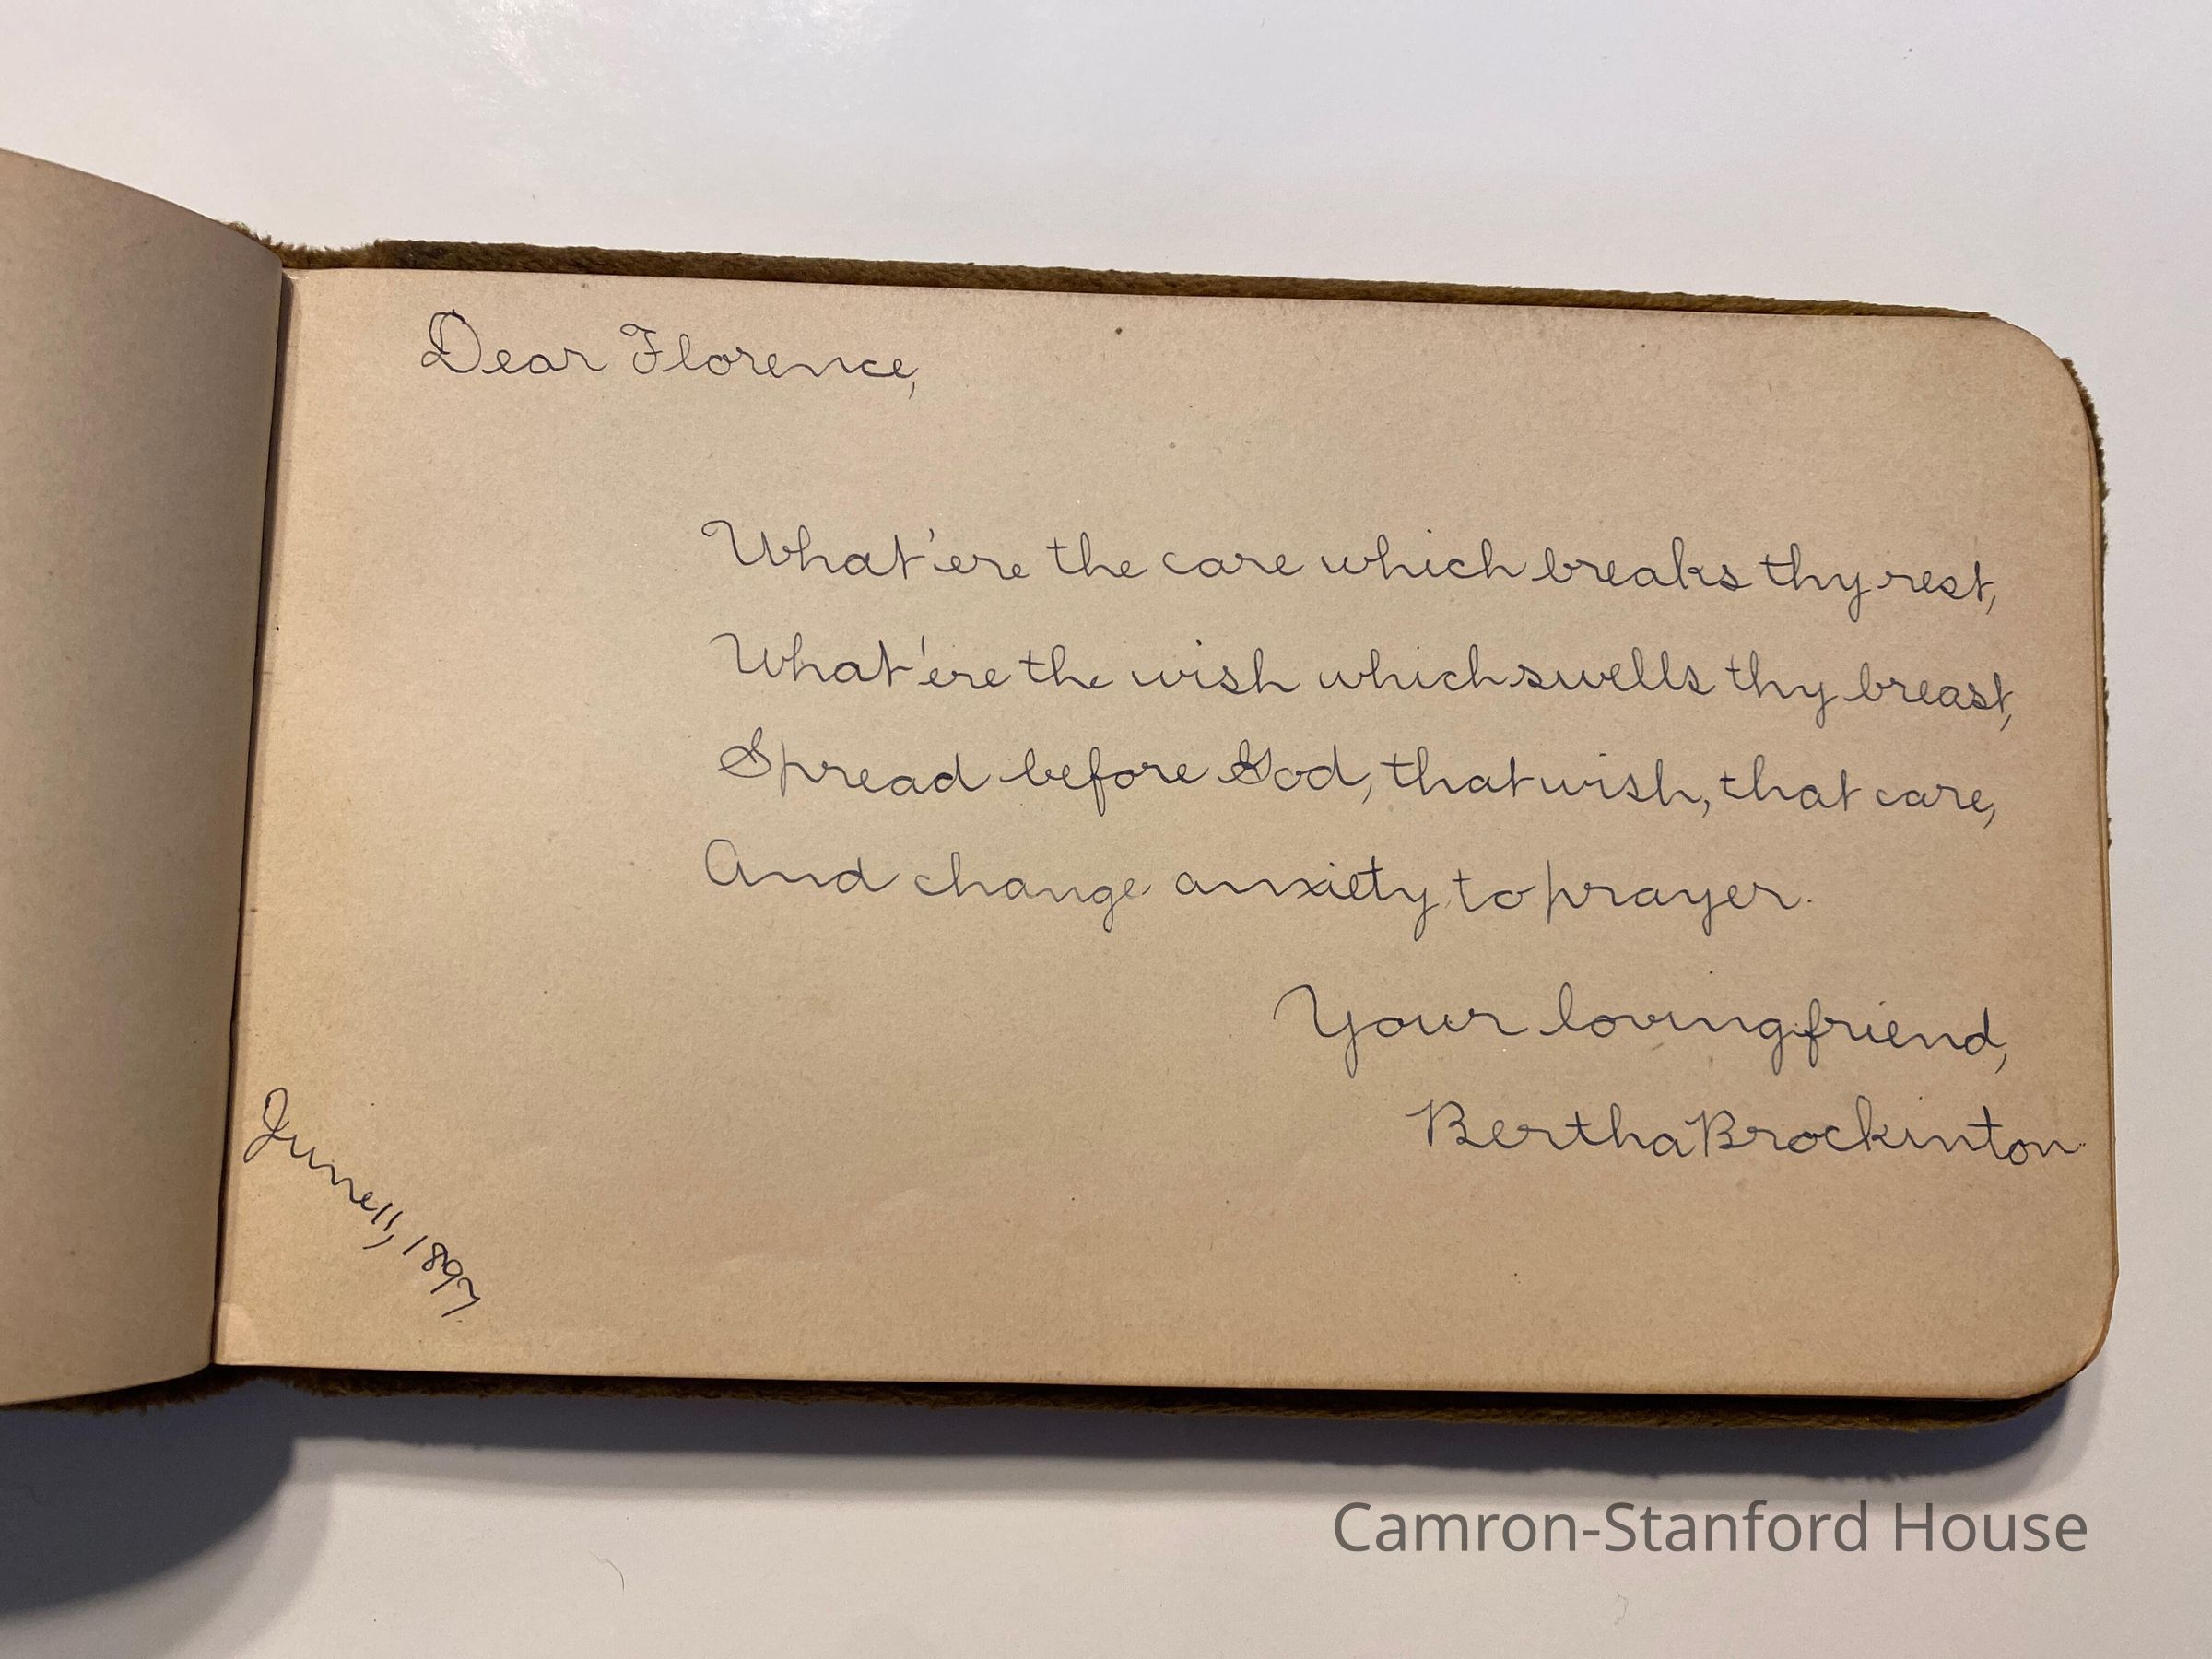 Dear Florence,
What'ere the care which breaks thy rest,
What'ere the wish which swells thy breast,
Spread before God, that wish, that care,
And change anxiety to prayer.
Your loving friend,
Bertha Brockinton.
June 11, 1897.
Camron-Stanford House